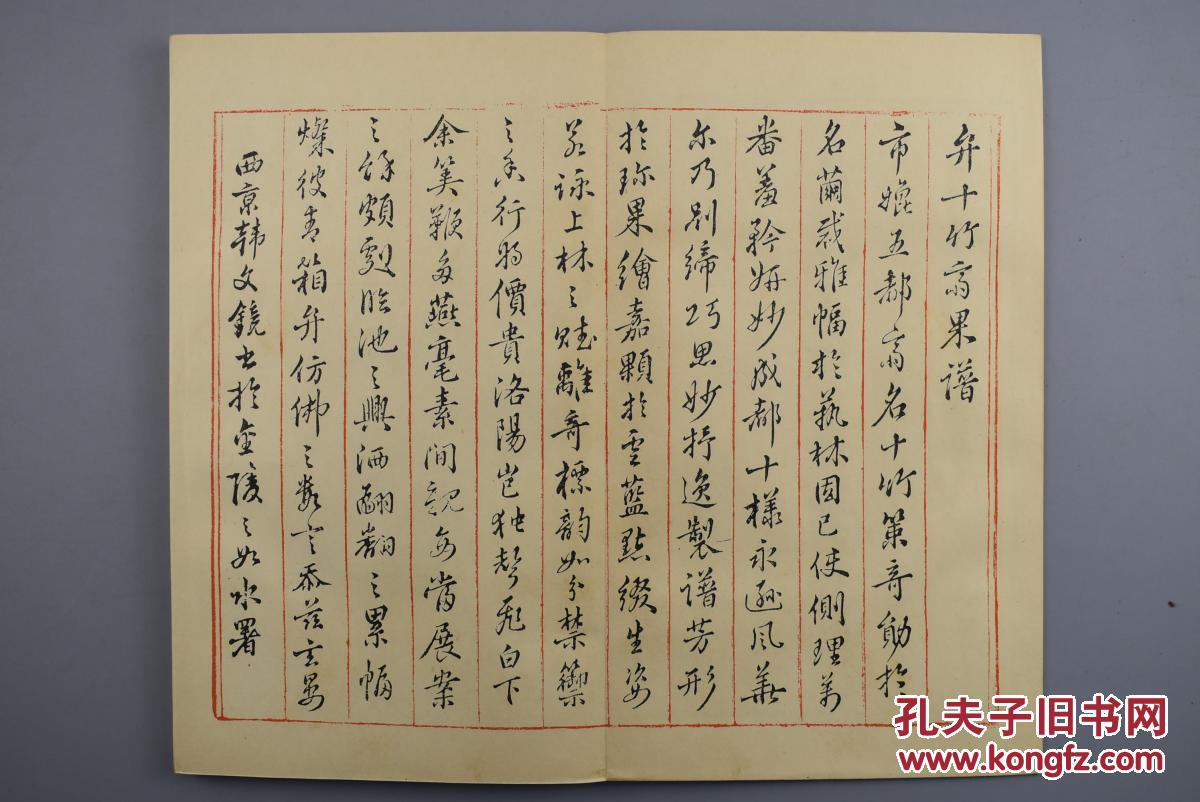 弁十竹斋果譜
市娓五都斋名十竹策奇勛於
名繭或雅幅於藝林固已使側理萬
番羞矜妍妙成都十樣永遜风華
尔乃别締巧思妙抒逸製譜芳形
於珎果繪嘉顆於雲藍點綴生姿
若詠上林之賦離奇標韵如分禁籞
之香行將價貴洛陽豈独聲飛白下
余箕鞭多燕亳素间親每當展案
之餘頗動臨池之興洒翩翻之累幅
燦彼青箱弁仿佛之數言忝兹玄晏
西京韩文鏡书於金陵之如水署
孔夫子旧书网
www.kongfz.com